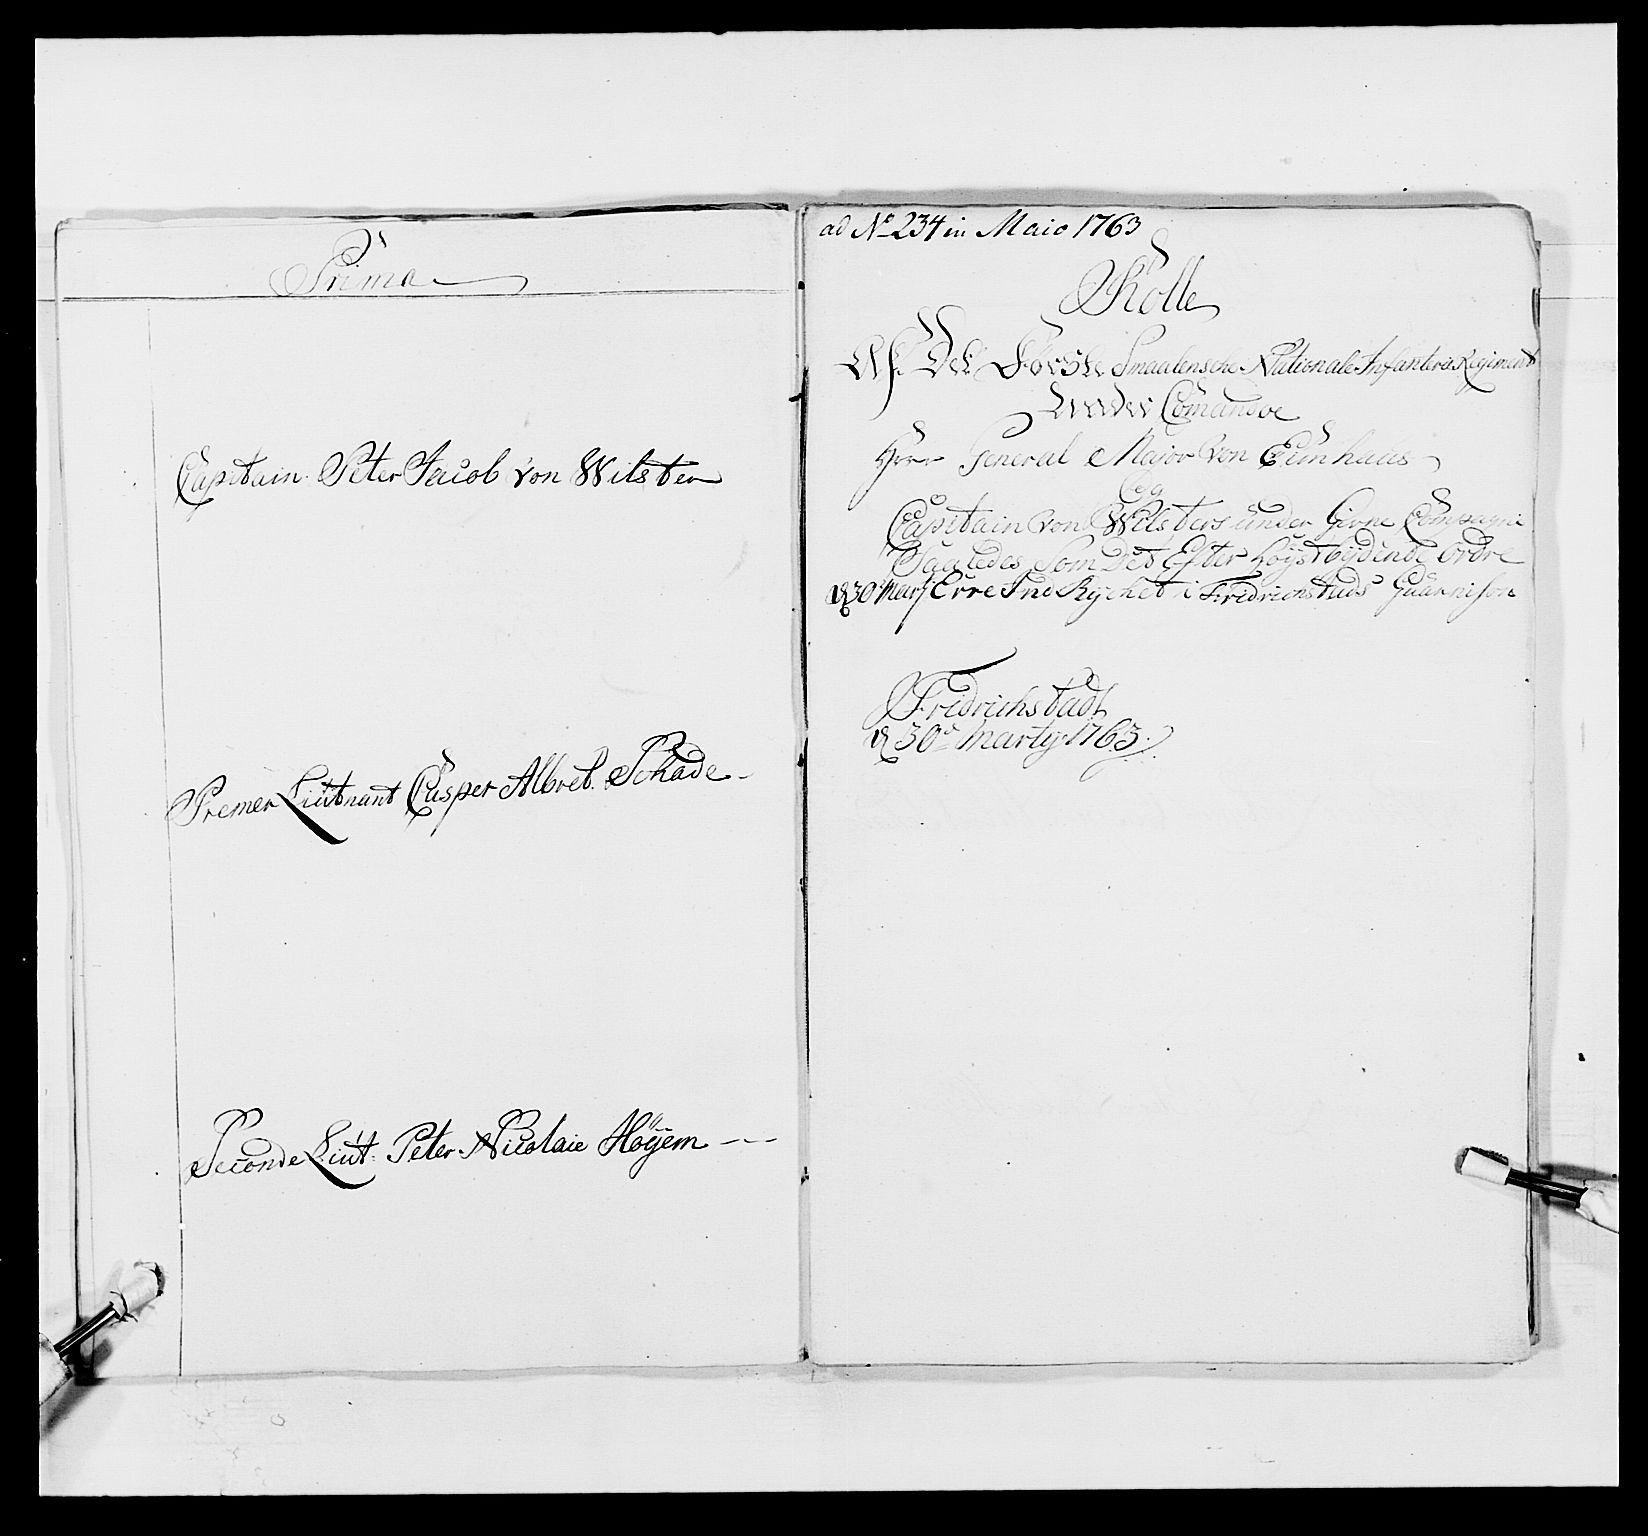 Prima
Capitain Peter Jacob von Wilster
Premer Liütnant Casper Albret Schade
Seconde Liüt: Peter Nicolaie Høÿem
ad No 234 in Maio 1763
Rolle
Af Det Første Smaalensche Nationale Infanterie Regiment
Under Comando
Herr General Major Von Eünhaus
Og
Capitain Von Wilsters ünder Givne Compagnie
Saaledes Som Det Efter Høÿstbÿdende Ordre
d 30 Martj Erre Ind Rÿchet i Fridrichstads Guarnison
Fridrichstadt
d 30d Martÿ 1763.